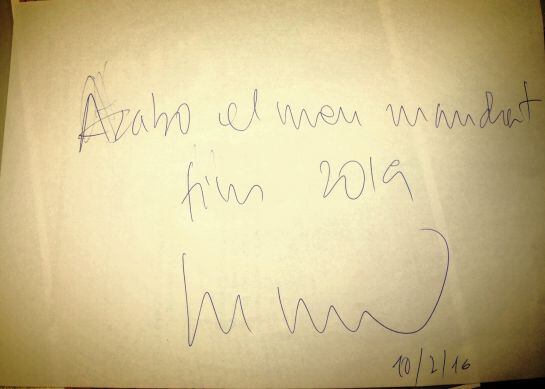 Acabo el meu mandat
fins 2019
10/2/16